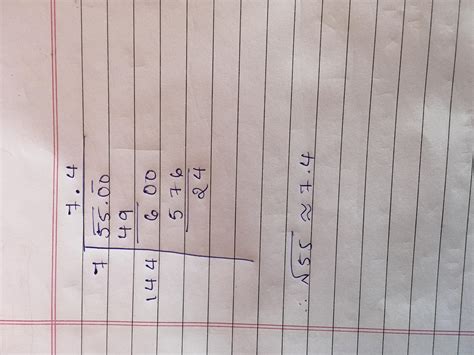 7.4
7 55.00
49
144 6 00
5 76
24
∴ √55 ≈ 7.4